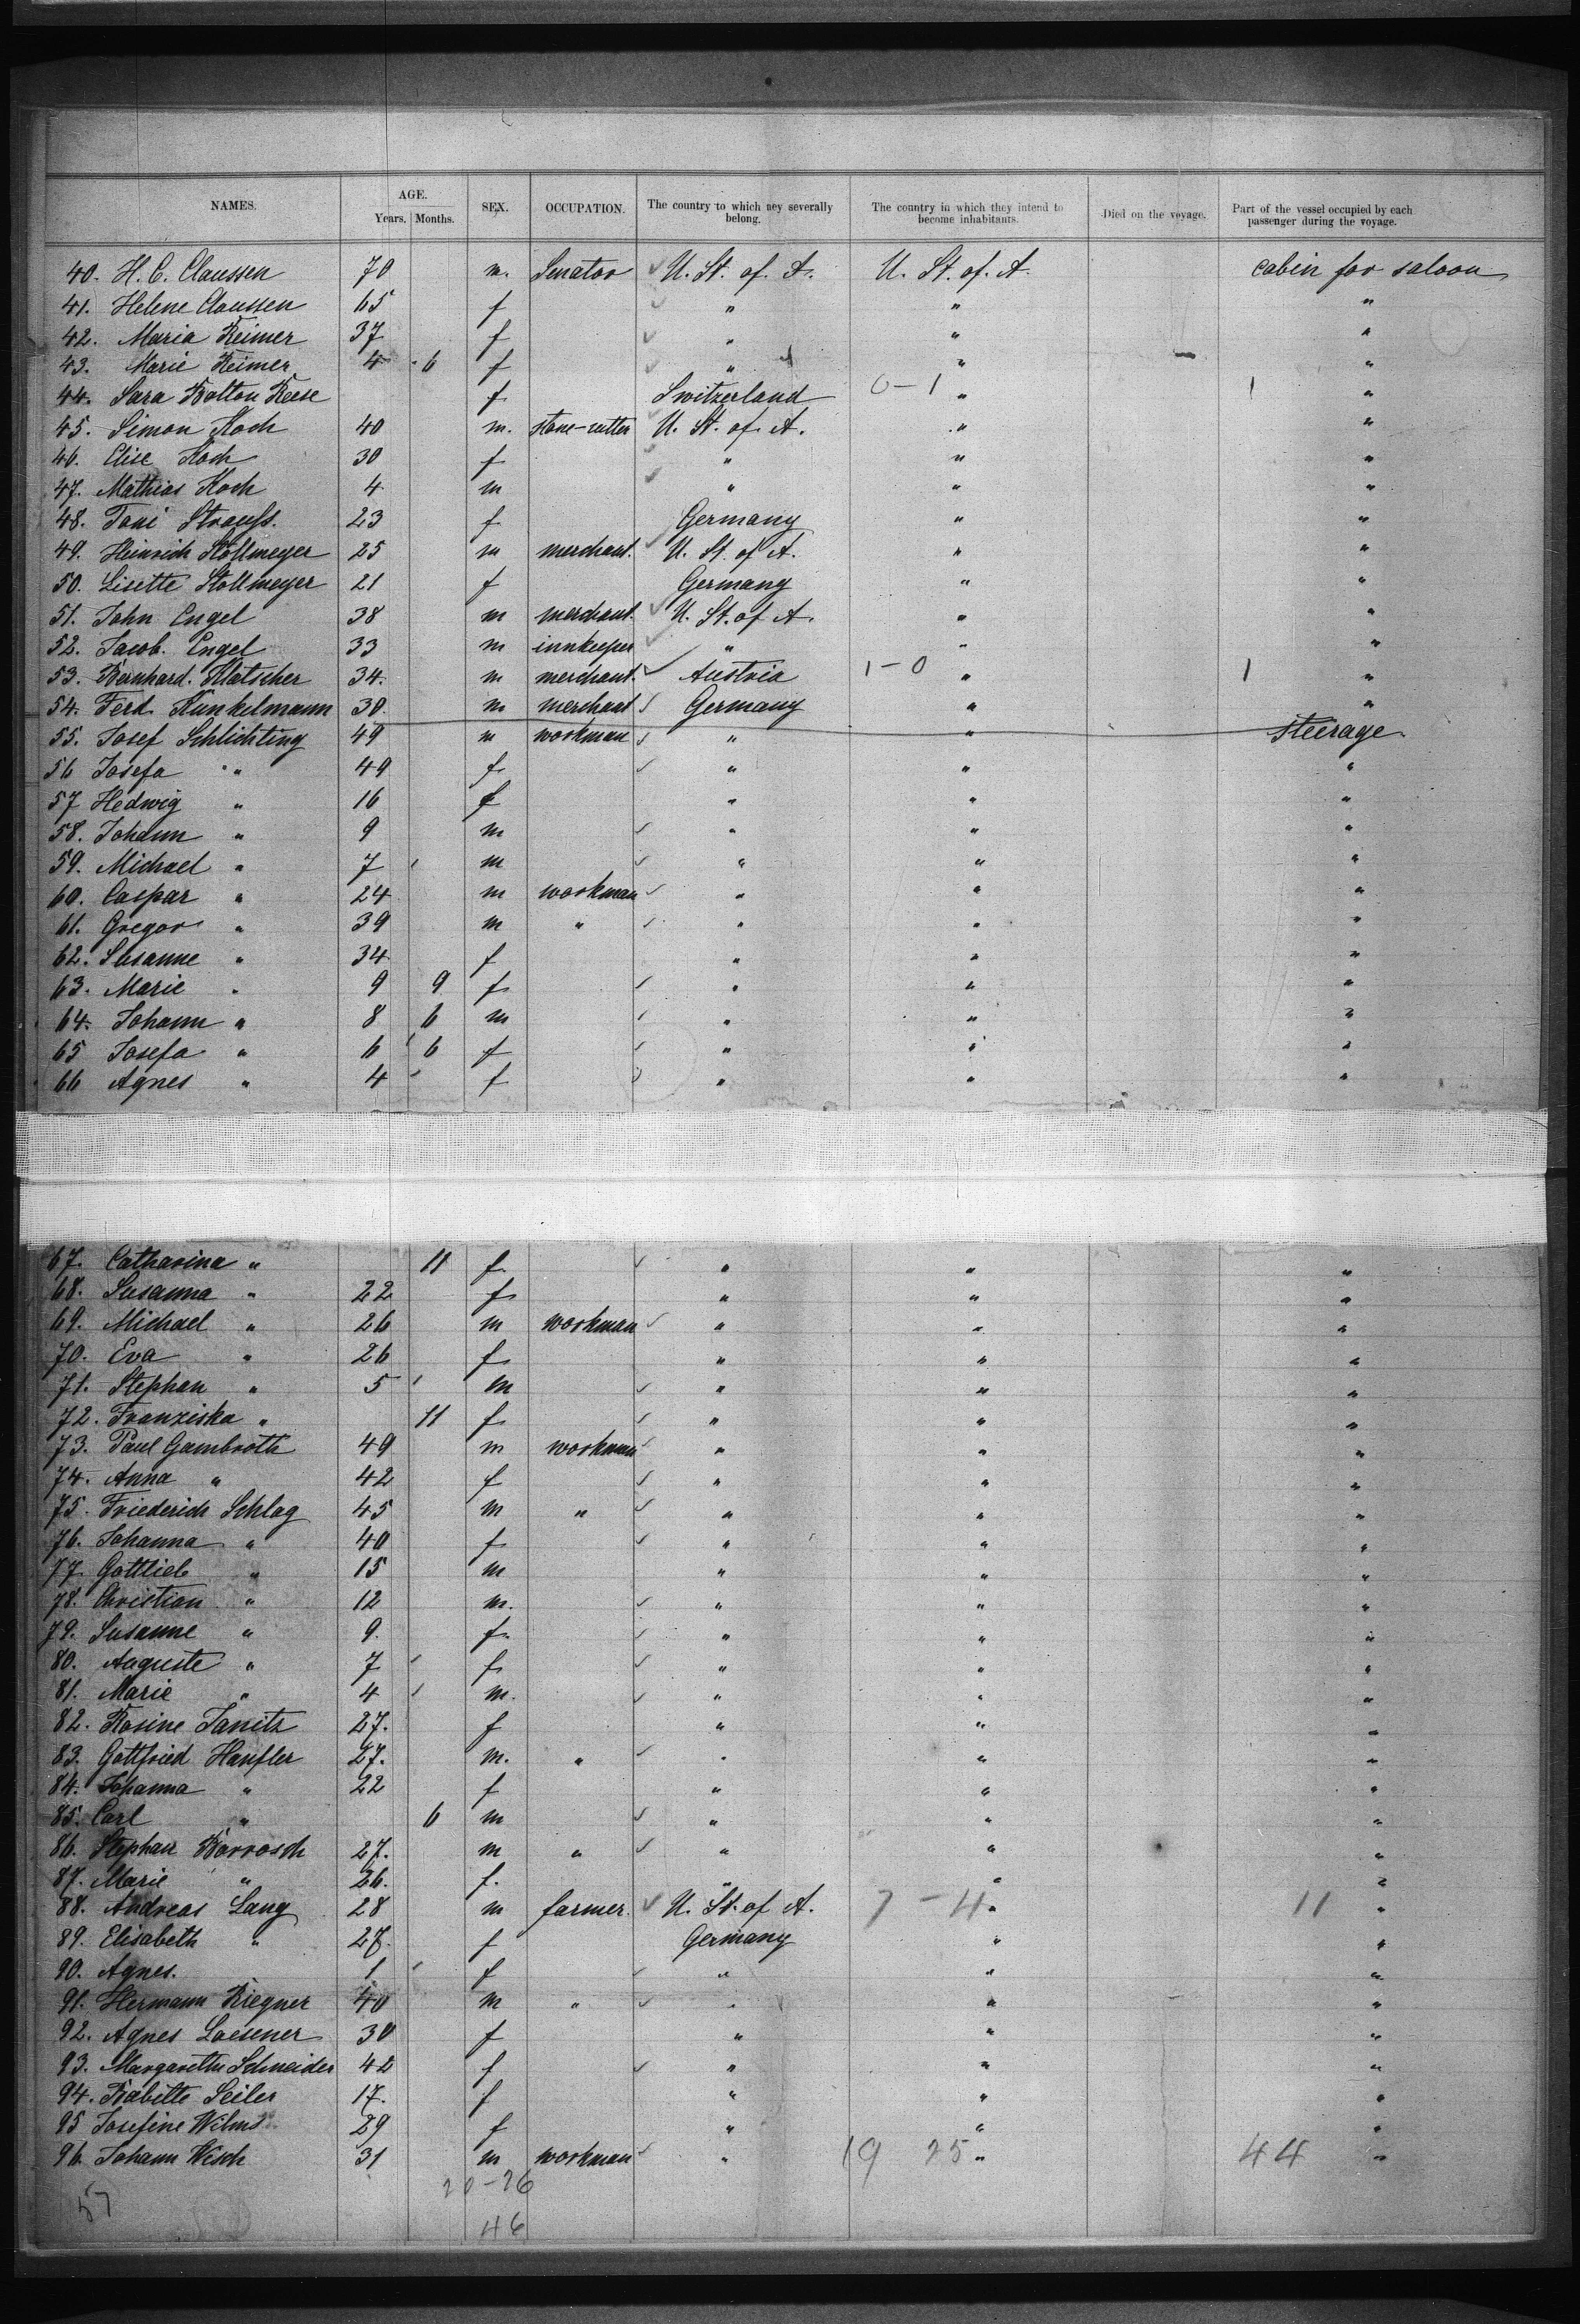 NAMES. AGE. Years. Months. SEX. OCCUPATION. The country to which hey severally belong. The country in which they intend to become inhabitants. Died on the voyage. Part of the vessel occupied by each passenger during the voyage.
40. H. C. Claussen 70 m. Senator U. St. of. A. U. St. of. A. cabin for saloon
41. Helene Claussen 65 f " " "
42. Maria Reimer 37 f " " "
43. Marie Reimer 4 6 f " " "
44. Sara Bolton Reese f Switzerland 0-1 " 1 "
45. Simon Koch 40 m. stone-cutter U. St. of. A. " "
46. Elise Koch 30 f " " "
47. Mathias Koch 4 m " " "
48. Toni Strauss. 23 f Germany " "
49. Heinrich Stollmeyer 25 m merchant. U. St. of A. " "
50. Lisette Stollmeyer 21 f Germany " "
51. John Engel 38 m merchant. U. St. of A. " "
52. Jacob. Engel 33 m innkeeper " " "
53. Bernhard. Klatscher 34. m merchant. Austria 1-0 " 1 "
54. Ferd. Kunkelmann 30. m merchant Germany " "
55. Josef Schlichting 49 m workman " " steerage.
56 Josefa " 49 f " " "
57 Hedwig " 16 f " " "
58. Johann " 9 m " " "
59. Michael " 7 m " " "
60. Caspar " 24 m workman " " "
61. Gregor " 39 m " " " "
62. Susanne " 34 f " " "
63. Marie " 9 9 f " " "
64. Johann " 8 6 m " " "
65 Josefa " 6 6 f " " "
66 Agnes " 4 f " " "
67. Catharina " 11 f " " "
68. Susanna " 22 f " " "
69. Michael " 26 m workman " " "
70. Eva " 26 f " " "
71. Stephan " 5 m " " "
72. Franziska " 11 f " " "
73. Paul Gambroth 49 m workman " " "
74. Anna " 42 f " " "
75. Friederich Schlag 45 m " " " "
76. Johanna " 40 f " " "
77. Gottlieb " 15 m " " "
78. Christian " 12 m. " " "
79. Susanne " 9. f. " " "
80. Auguste " 7 f " " "
81. Marie " 4 m. " " "
82. Rosine Janitz 27. f " " "
83. Gottfried Haufler 27. m. " " " "
84. Johanna " 22 f " " "
85. Carl " 6 m " " "
86. Stephan Borrosch 27. m " " " "
87. Marie " 26. f. " " "
88. Andreas Lang 28 m farmer. U. St. of A. 7 - 4 " 11 "
89. Elisabeth " 27. f Germany " "
90. Agnes. " 1. f " " "
91. Hermann Riegner 40 m " " " "
92. Agnes Loesener 30 f " " "
93. Margarethe Schneider 42 f " " "
94. Babette Seiler 17. f " " "
95 Josefine Wilms 29 f " " "
96. Johann Wesch 31 m workman " 19 25 " 44 "
57 20-26
46